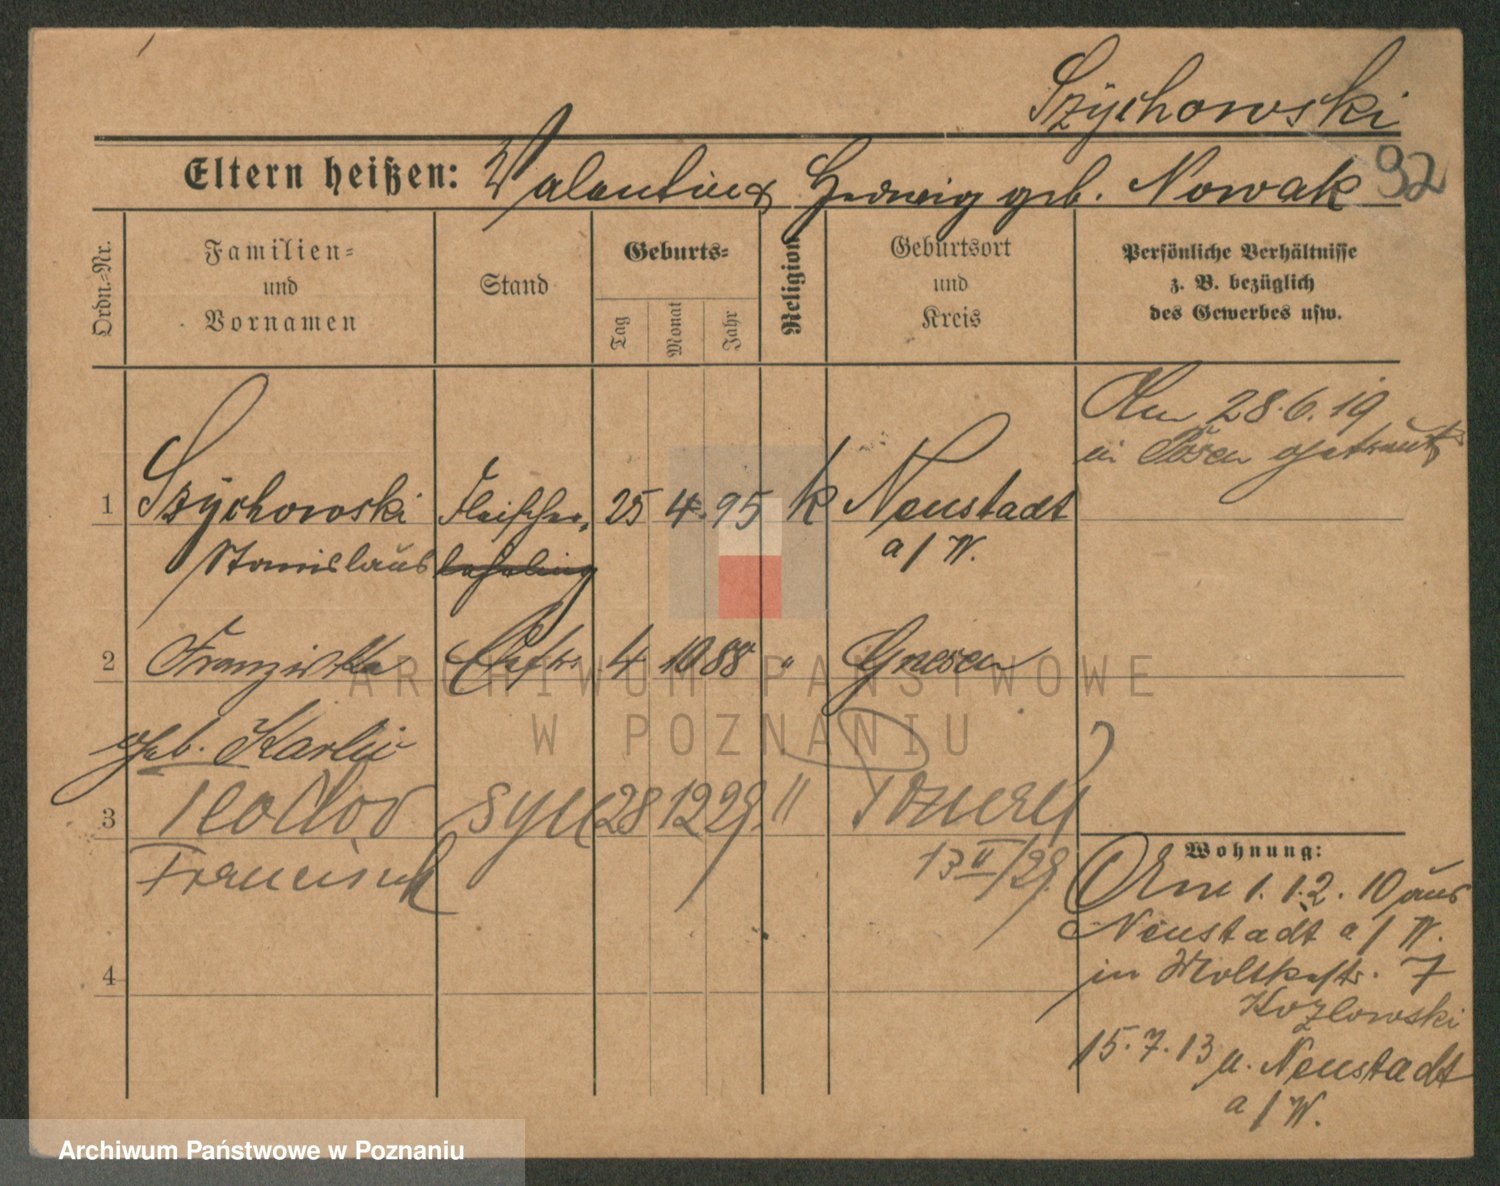 Szychowski
Eltern heißen: Valentin & Hedwig geb. Nowak 32
Ordn.-Nr.
Familien-
und
Vornamen
Stand
Geburts-
Tag
Monat
Jahr
Religion
Geburtsort
und
Kreis
Persönliche Verhältnisse
z. B. bezüglich
des Gewerbes usw.
Am 28.6.19
in Posen getraut
1 Szychowski Fleischer, 25 4. 95 k Neustadt
Stanislaus lehrling a/W.
2 Franziska Ehefr. 4 10 88 " Gnesen
geb. Karlic
3 Teodor syn 28 12 29 "
Francisek 13 II/29
4
Wohnung:
Am 1.12.10 aus
Neustadt a/W.
in Moltkestr. 7
Kozlowski
15.7.13 n. Neustadt
a/W.
ARCHIWUM PAŃSTWOWE
W POZNANIU
Archiwum Państwowe w Poznaniu